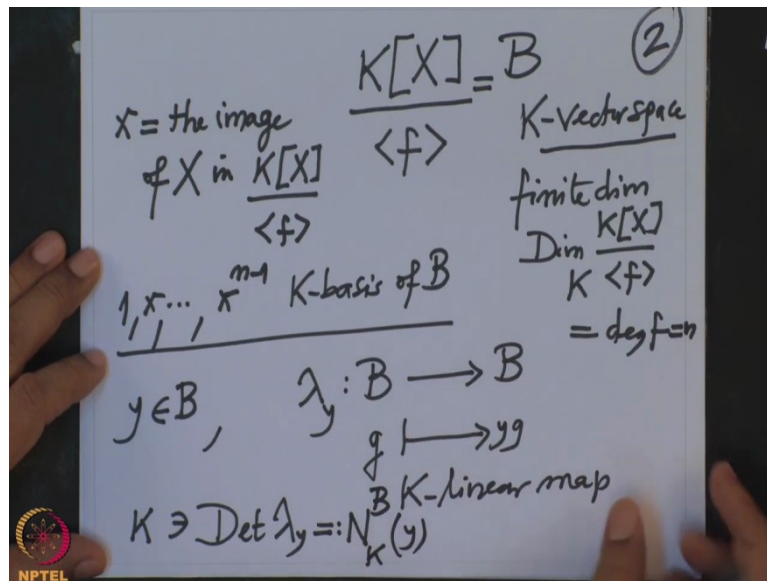 2
K[X] = B
<f>
x = the image
of X in K[X]
<f>
K-vector space
finite dim
Dim K[X]
K <f>
= deg f = n
1, x, ..., x^{n-1} K-basis of B
y ∈ B, λ_y : B ⟶ B
g ⟼ yg
K-linear map
K ∋ Det λ_y =: N^B_K(y)
NPTEL